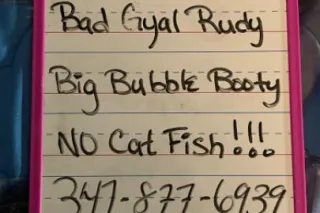 Bad Gyal Rudy
Big Bubble Booty
NO Cat Fish!!!
347-877-6939